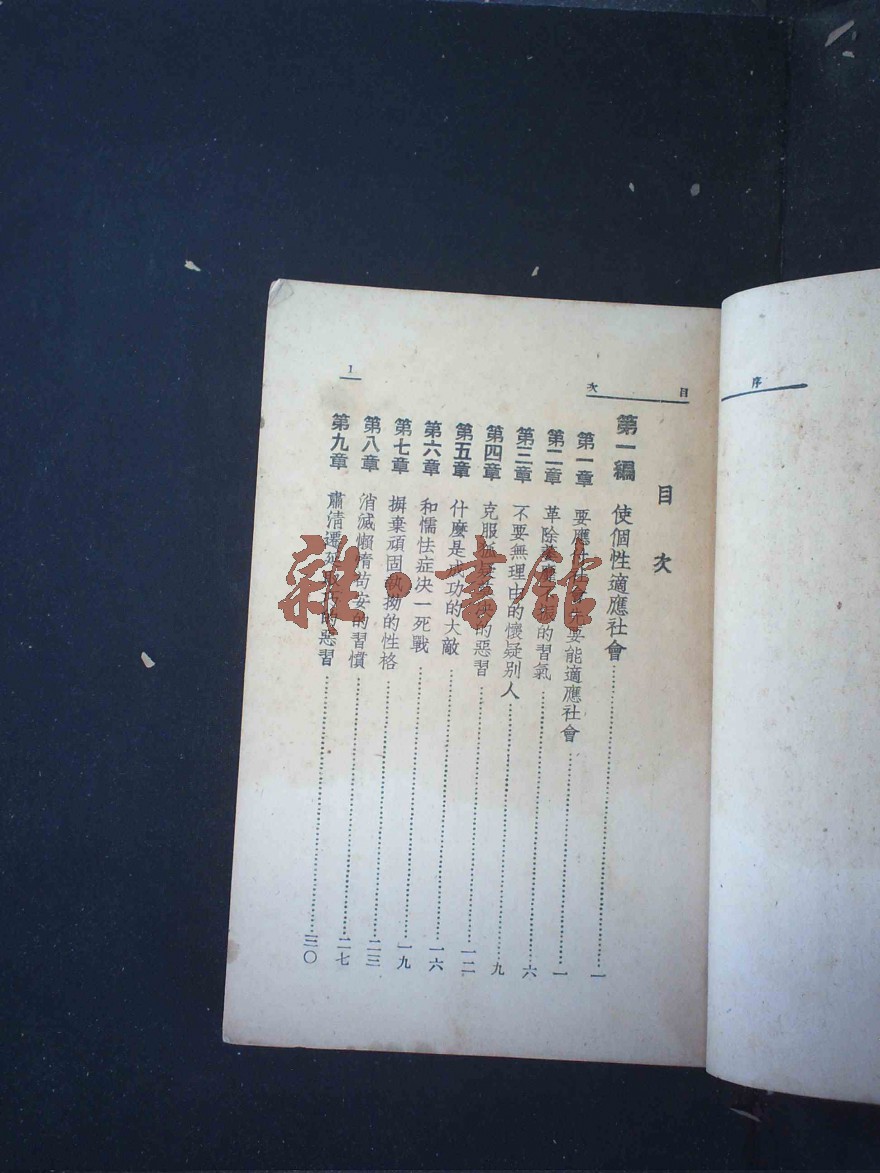 序
目次
目次
第一編 使個性適應社會……一
第一章 要應 要能適應社會……一
第二章 革除 的習氣……六
第三章 不要無理由的懷疑別人……九
第四章 克服 的惡習……一二
第五章 什麼是成功的大敵……一六
第六章 和懦怯症决一死戰……一九
第七章 摒棄頑固執拗的性格……二三
第八章 消滅懶惰苟安的習慣……二七
第九章 肅清遷延 的惡習……三〇
1
雜·書館